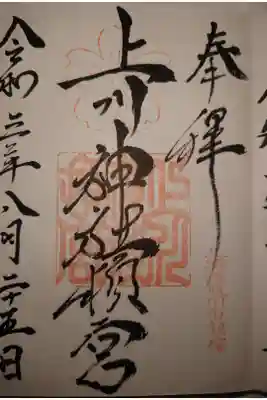 奉拝
上川神社頓宮
令和三年八月二十五日